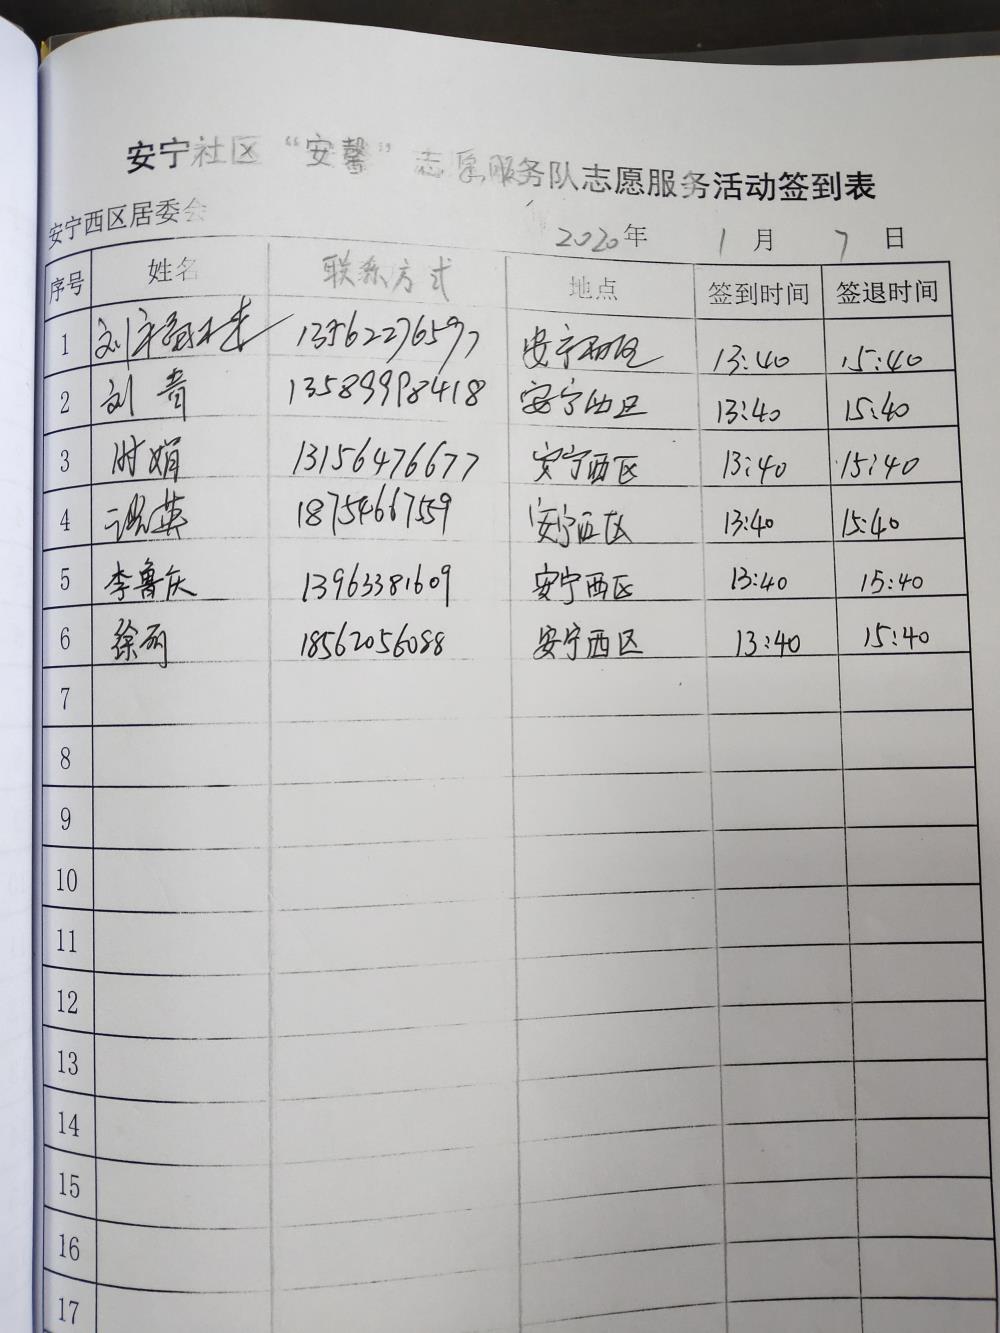 安宁社区“安馨”志愿服务队志愿服务活动签到表
安宁西区居委会 2020年 1月 7日
序号 姓名 联系方式 地点 签到时间 签退时间
1 刘 13562276597 安宁西区 13:40 15:40
2 刘青 13589998418 安宁西区 13:40 15:40
3 时娟 13156476677 安宁西区 13:40 15:40
4 英 18754667559 安宁西区 13:40 15:40
5 李鲁庆 13963381609 安宁西区 13:40 15:40
6 徐丽 18562056088 安宁西区 13:40 15:40
7
8
9
10
11
12
13
14
15
16
17